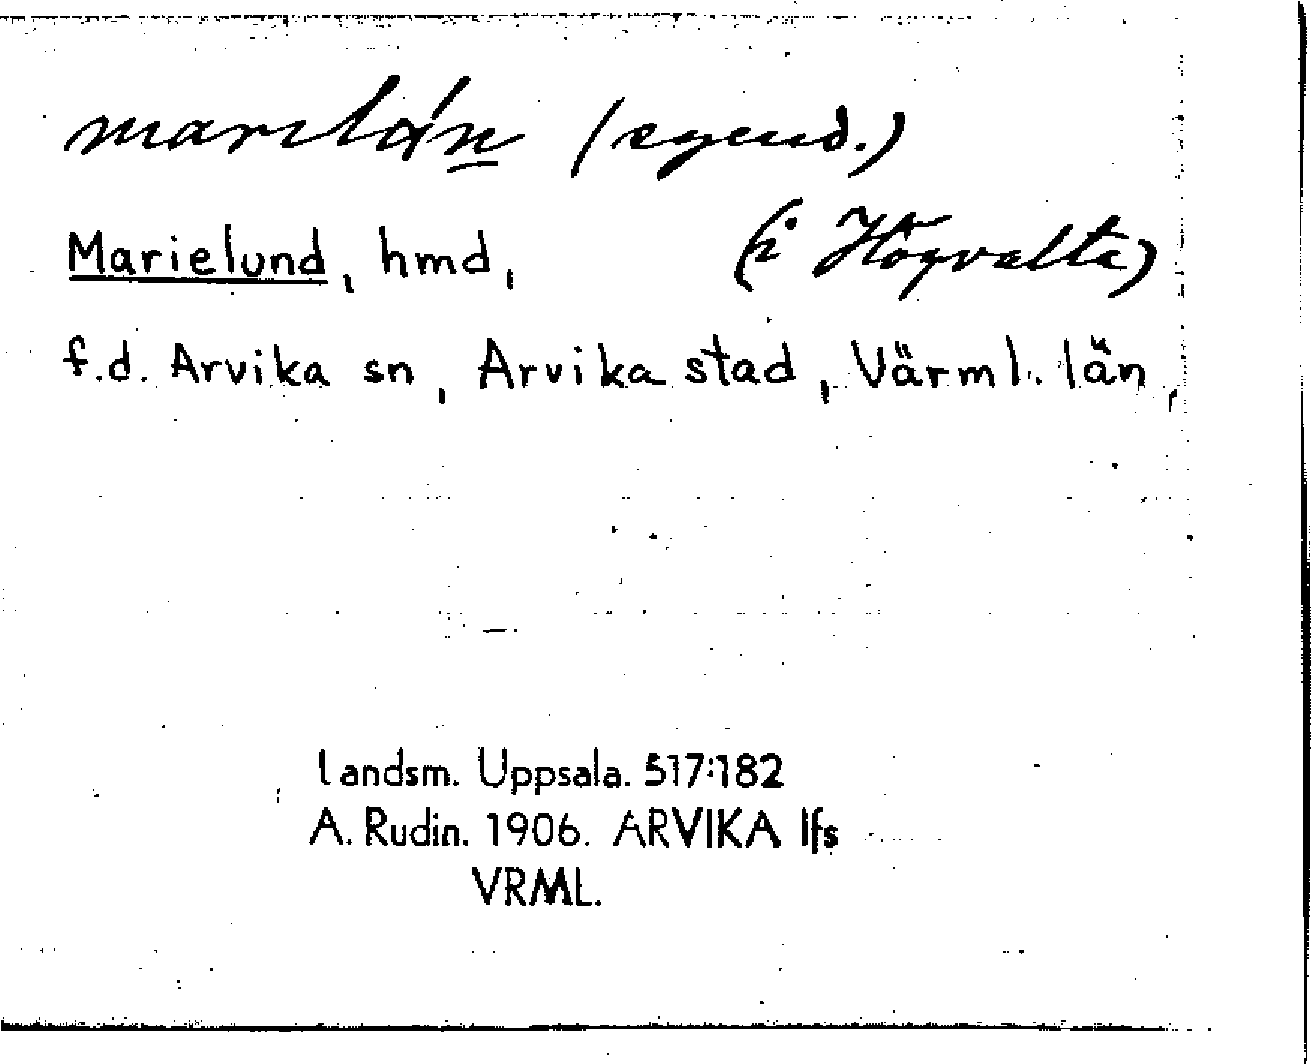 (egend.)
Marielund, hmd, (i Högvalta)
f.d. Arvika sn, Arvika stad, Värml. län,
Landsm. Uppsala. 517:182
A. Rudin. 1906. ARVIKA lfs
VRML.